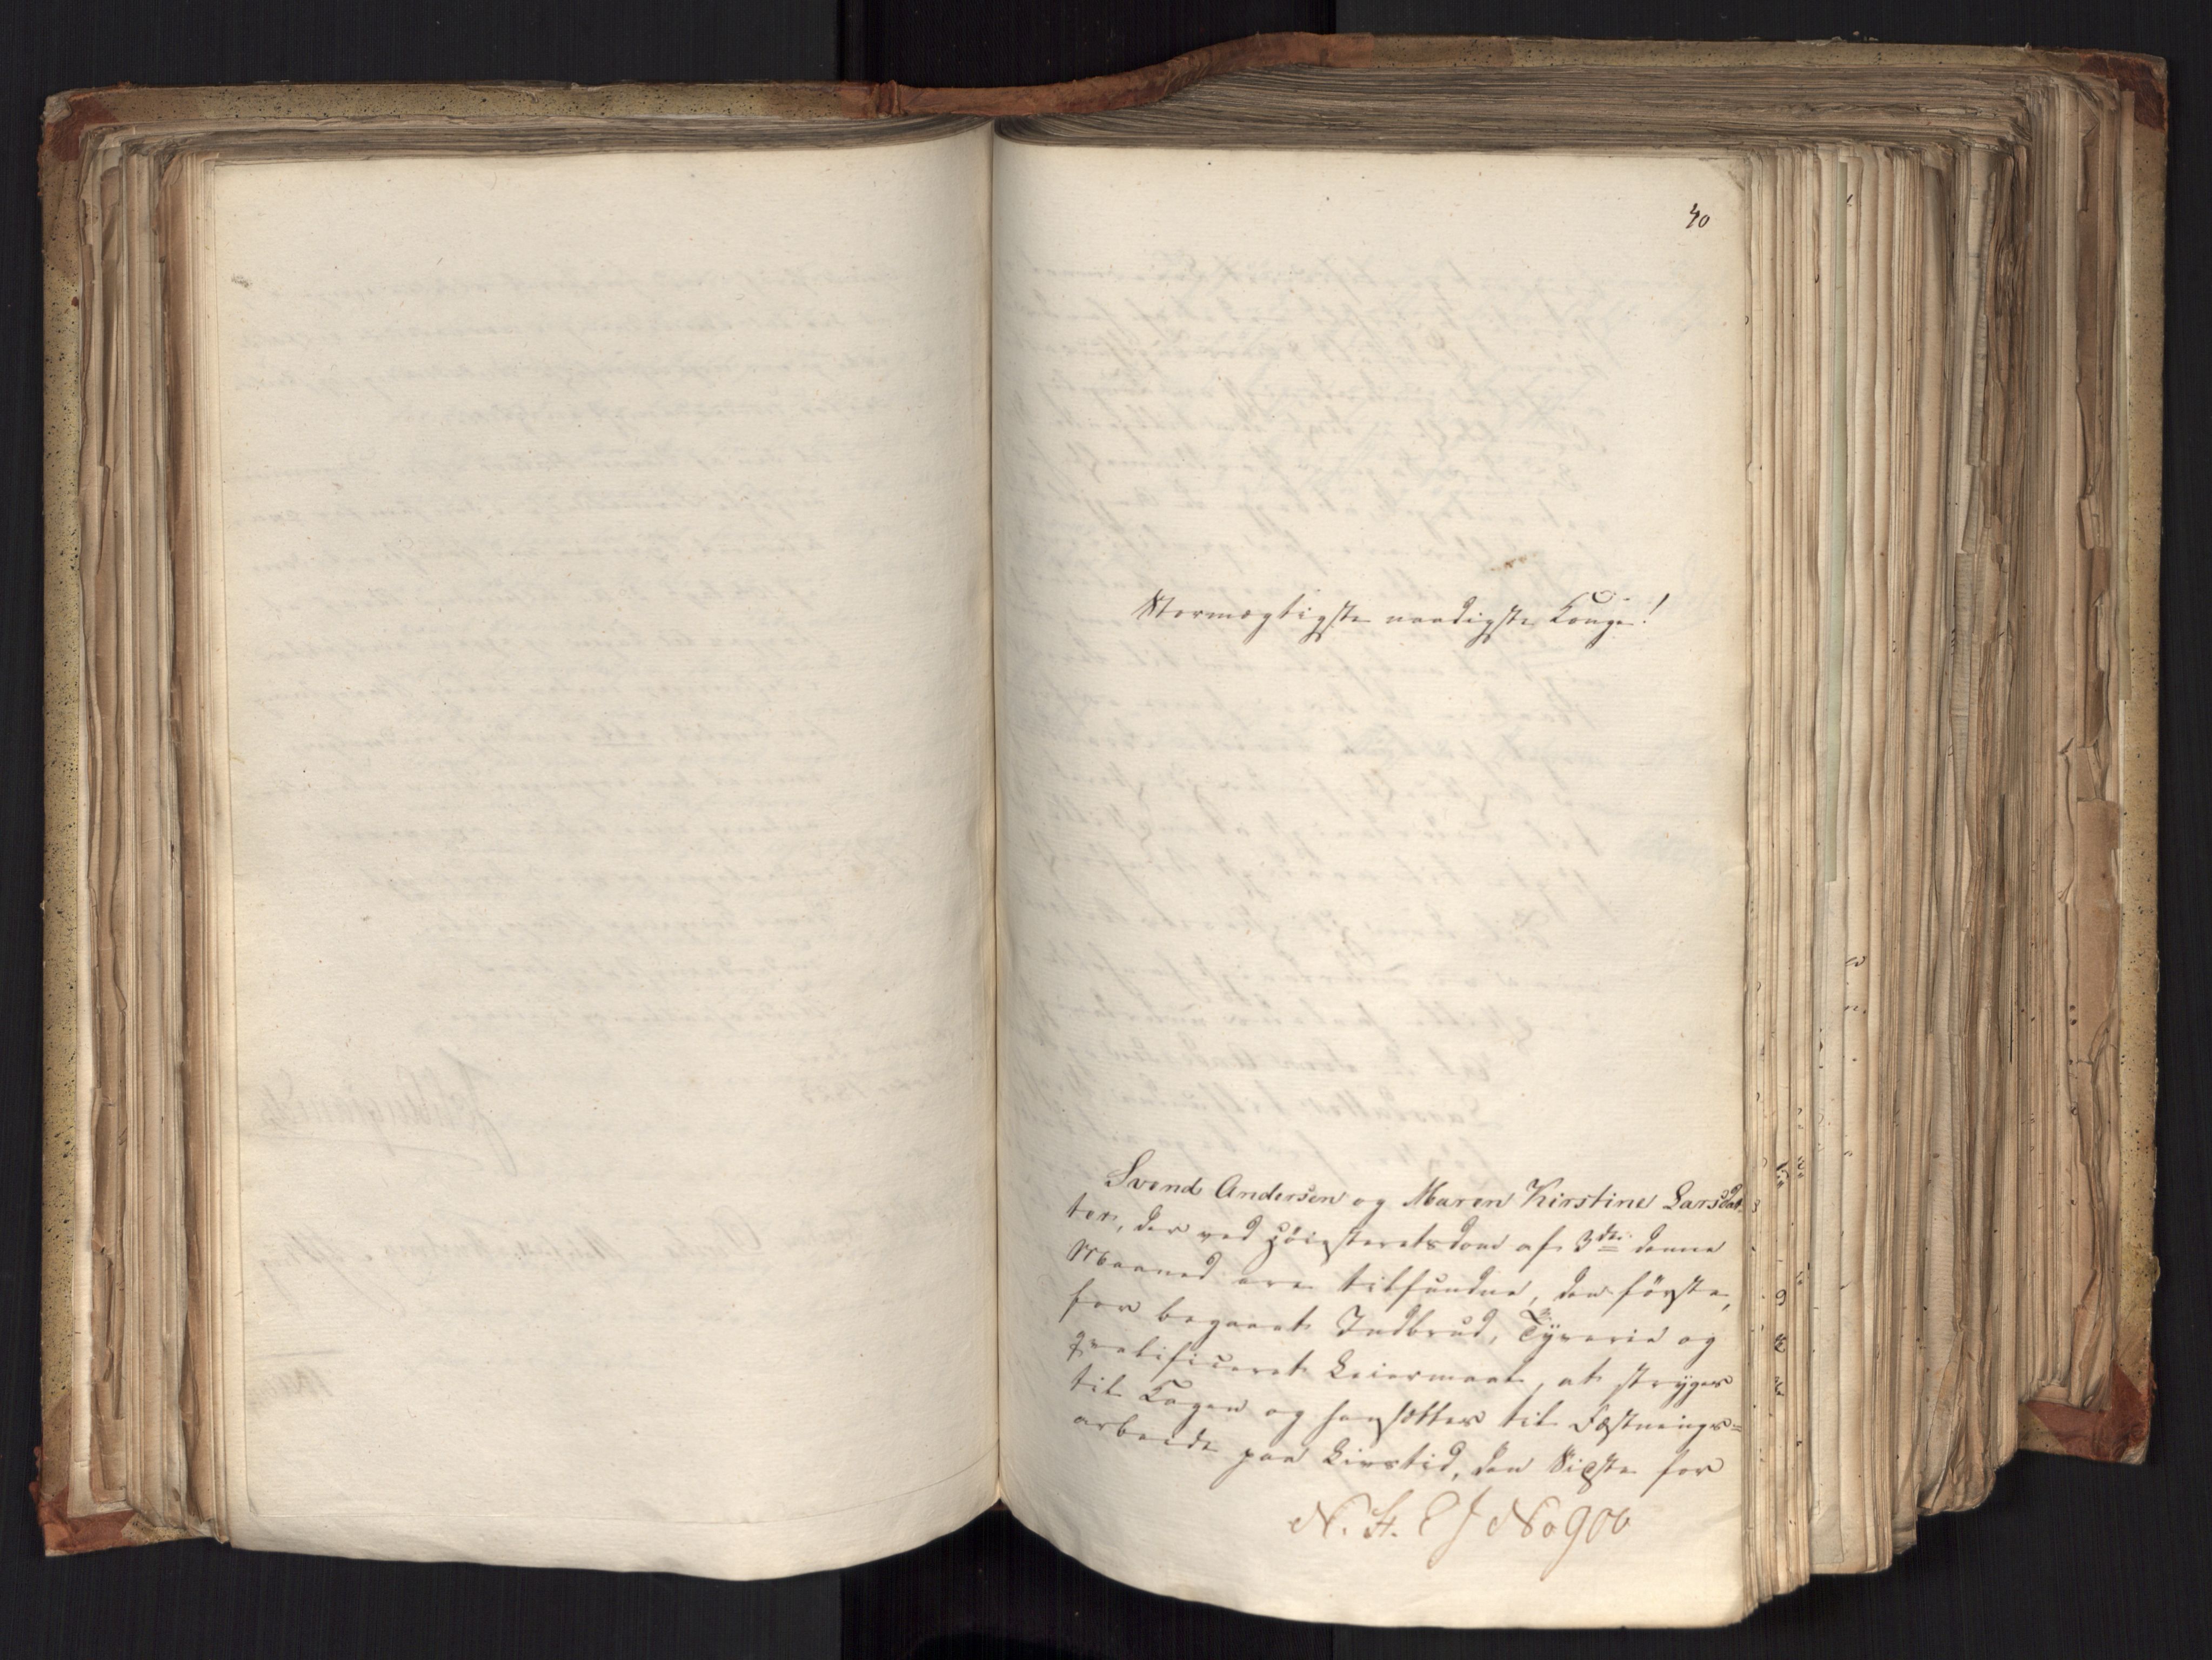 40
Stormægtigste naadigste Konge!
Svend Andersen og Maren Kirstine Larsdat-
ter, der ved Höiesteretsdom af 3die denne
Maaned ere tilfundne, den förste,
for begaaet Indbrud, Tÿverie og
qvalificeret Leiermaal, at strÿges
til Kagen og hensættes til Fæstnings=
arbeide paa Livstid, den Sidste for
N. 900